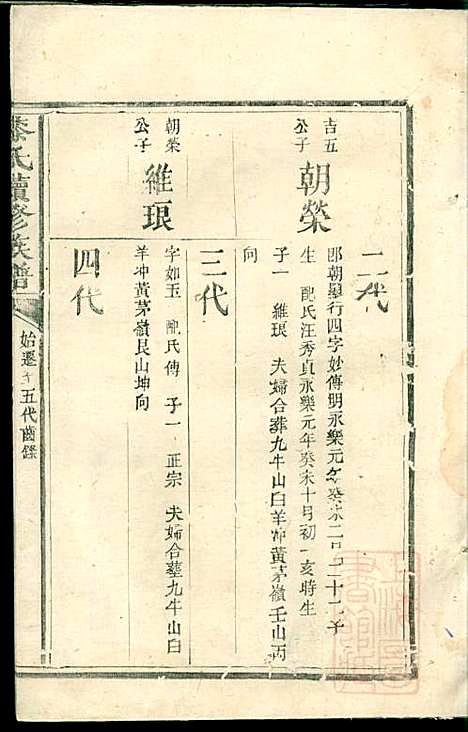 二代
吉五
公子
朝榮
郎朝舉行四字妙傳明永樂元年癸未二月二十二子
生 配氏汪秀貞永樂元年癸未十月初一亥時生
子一 維琅 夫婦合葬九牛山白羊冲黃茅嶺壬山丙
向
三代
朝榮
公子
維琅
字如玉 配氏傅 子一 正宗 夫婦合葬九牛山白
羊冲黃茅嶺艮山坤向
四代
氏續修族譜
始遷 五代齒錄